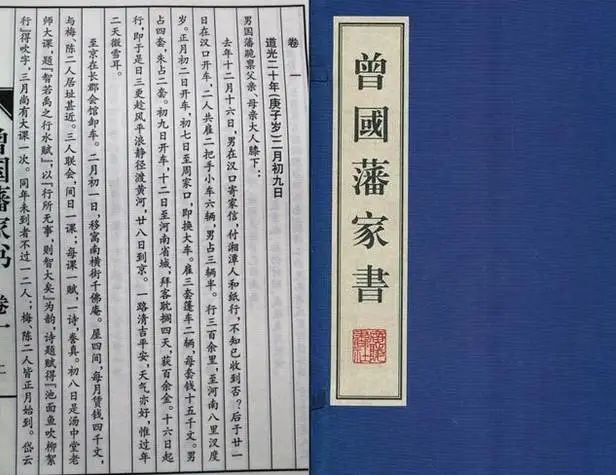 卷一
道光二十年(庚子岁)二月初九日
男国藩跪禀父亲、母亲大人膝下：
去年十二月十六日，男在汉口寄家信，付湘潭人和纸行，不知已收到否？后于廿一
日在汉口开车，二人共雇二把手小车六辆，男占三辆半。行三百余里，至河南八里汊度
岁。正月初二日开车，初七日至周家口，即换大车。雇三套篷车二辆，每套钱十五千文。男
占四套，朱占二套。初九日开车，十二日至河南省城，拜客耽搁四天，获百余金。十六日起
行，即于是日三更趁风平浪静径渡黄河，廿八日到京。一路清吉平安，天气亦好，惟过年
二天微雪耳。
至京在长郡会馆卸车。二月初一日，移寓南横街千佛庵。屋四间，每月赁钱四千文，
与梅、陈二人居址甚近。三人联会，间日一课；每课一赋，一诗，誊真。初八日是汤中堂老
师大课，题“智若禹之行水赋”，以“行所无事，则智大矣”为韵，诗题赋得“池面鱼吹柳絮
行”得吹字，三月尚有大课一次。同年未到者不过一二人；梅、陈二人皆正月始到。岱云
曾国藩家书 卷一
曾國藩家書